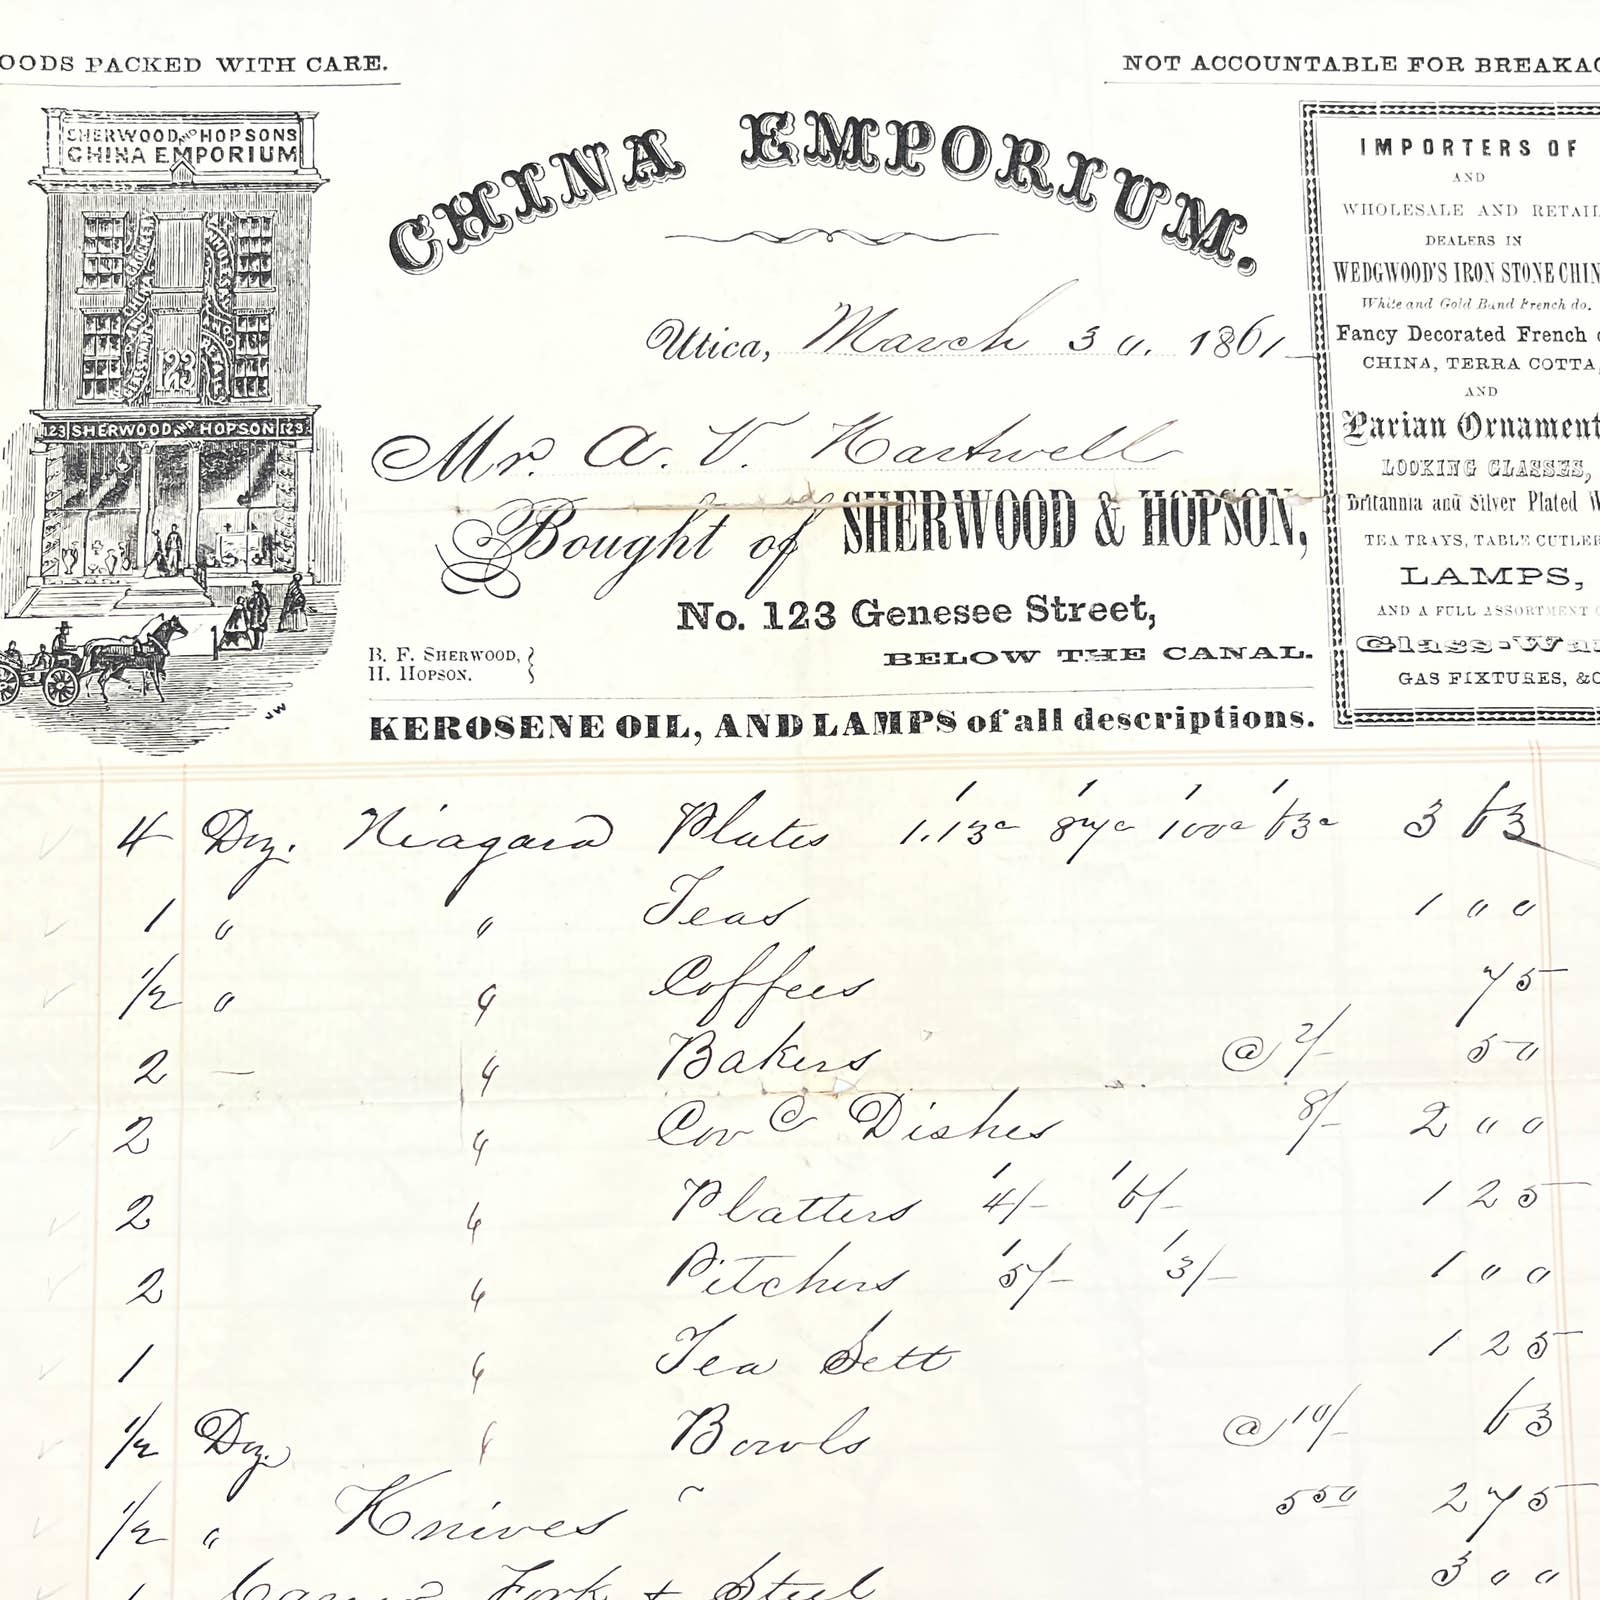 OODS PACKED WITH CARE.
NOT ACCOUNTABLE FOR BREAKAG
SHERWOOD AND HOPSONS
CHINA EMPORIUM
123 SHERWOOD AND HOPSON 123
JW
CHINA EMPORIUM.
Utica, March 30. 1861
Mr. A. V. Hartwell
Bought of SHERWOOD & HOPSON,
No. 123 Genesee Street,
BELOW THE CANAL.
B. F. SHERWOOD,
H. HOPSON.
KEROSENE OIL, AND LAMPS of all descriptions.
IMPORTERS OF
AND
WHOLESALE AND RETAIL
DEALERS IN
WEDGWOOD'S IRON STONE CHIN
White and Gold Band French do.
Fancy Decorated French
CHINA, TERRA COTTA,
AND
Parian Ornament
LOOKING GLASSES,
Britannia and Silver Plated W
TEA TRAYS, TABLE CUTLER
LAMPS,
AND A FULL ASSORTMENT O
Glass-Wa
GAS FIXTURES, &C
4 Doz. Niagara Plates 1 1.13c 1 87c 1 100c 1 63c 3 63
1 " " Teas 1 00
1/2 " " Coffees 75
2 — " Bakers @ 2/- 50
2 " Cov d Dishes 8/- 2 00
2 " Platters 1 4/- 1 6/- 1 25
2 " Pitchers 1 5/- 1 3/- 1 00
1 " Tea Sett 1 25
1/2 Doz. " Bowls @ 10/- 63
1/2 " Knives 550 2 75
1 Carv g Fork & Steel 3 00